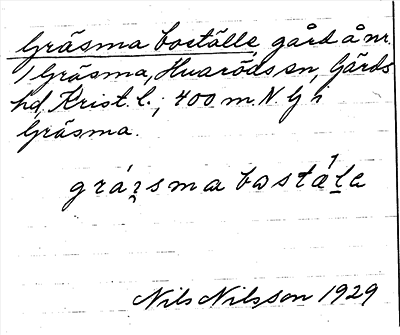 Gräsma boställe, gård å nr.
1 Gräsma, Huaröds sn, Gärds
hd, Krist. l.; 400 m. N. G i
Gräsma.
gräʒsma bostäla
Nils Nilsson 1929